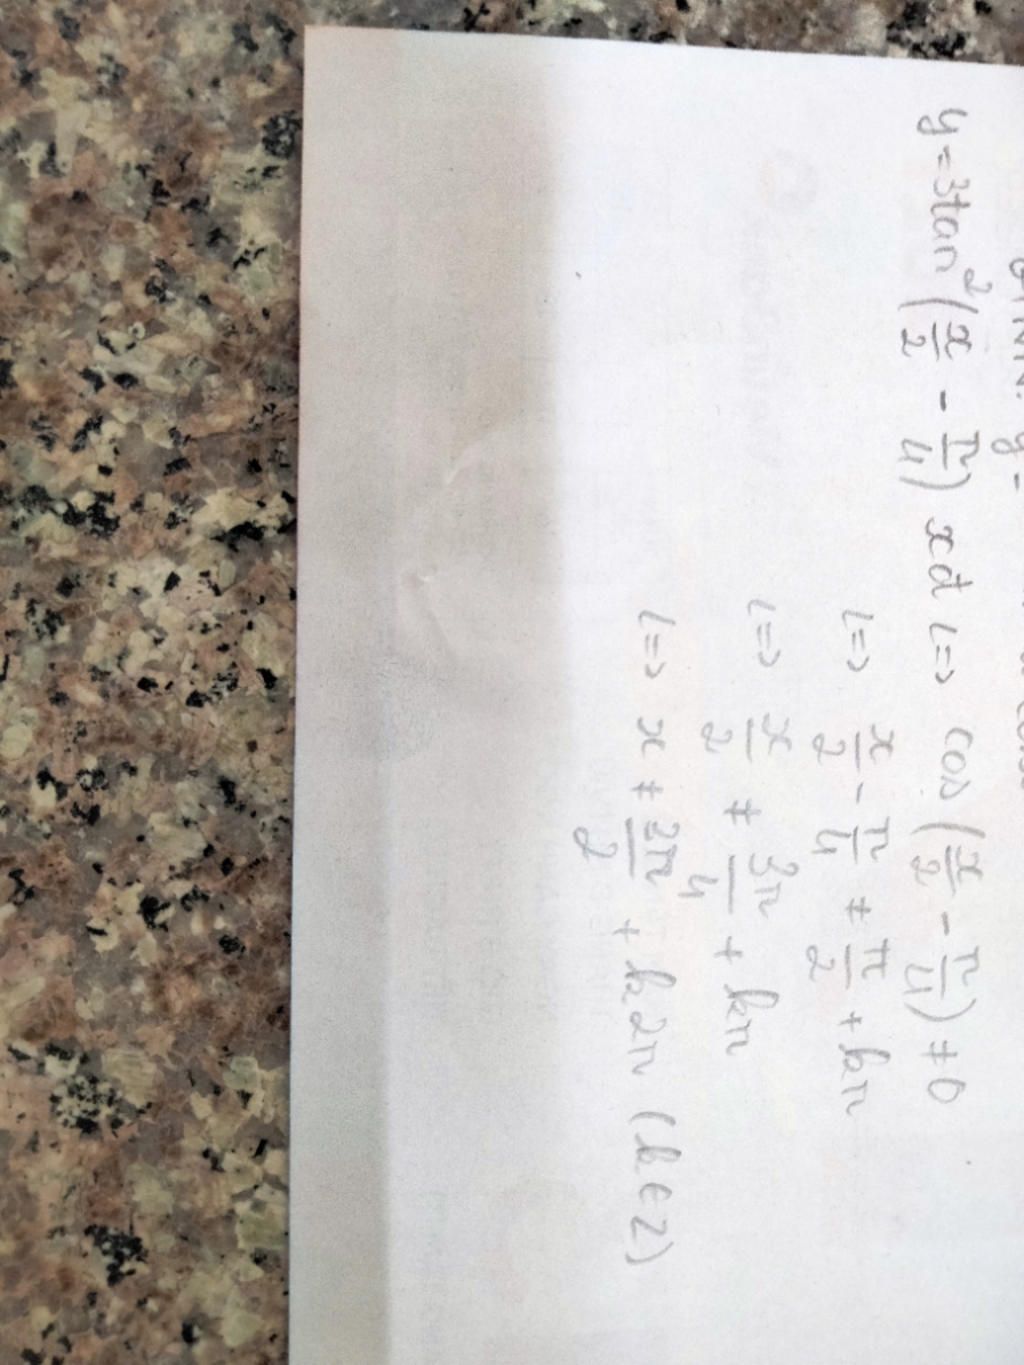 y = 3tan²(x/2 - π/4) xđ <=> cos(x/2 - π/4) ≠ 0
<=> x/2 - π/4 ≠ π/2 + kπ
<=> x/2 ≠ 3π/4 + kπ
<=> x ≠ 3π/2 + k2π (k ∈ Z)